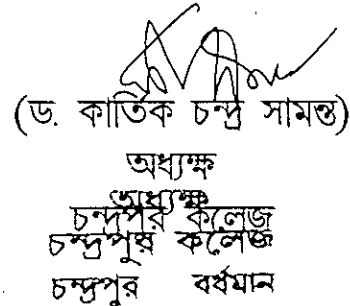 (ড. কার্তিক চন্দ্র সামন্ত)
অধ্যক্ষ
অধ্যক্ষ
চন্দ্রপুর কলেজ
চন্দ্রপুর কলেজ
চন্দ্রপুর বর্ধমান